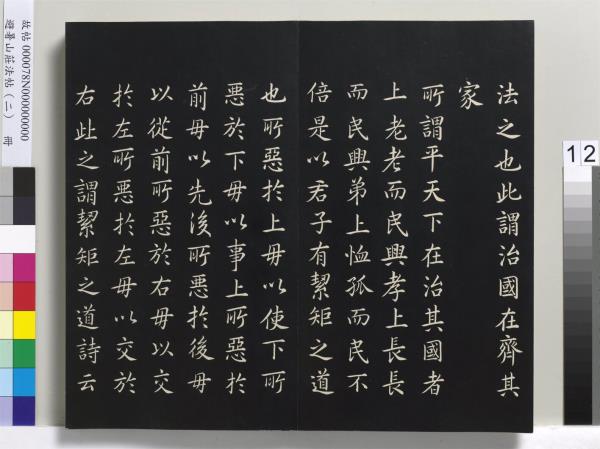 法之也此謂治國在齊其
家
所謂平天下在治其國者
上老老而民興孝上長長
而民興弟上恤孤而民不
倍是以君子有絜矩之道
也所惡於上毋以使下所
惡於下毋以事上所惡於
前毋以先後所惡於後毋
以從前所惡於右毋以交
於左所惡於左毋以交於
右此之謂絜矩之道詩云
故帖 000078N000000000
避暑山莊法帖（二） 冊
12